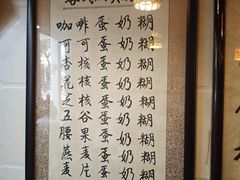 咖啡蛋奶糊
可可蛋奶糊
杏核蛋奶糊
花核蛋奶糊
五谷蛋奶糊
腰果蛋奶糊
燕麦蛋奶糊
麦片蛋奶糊